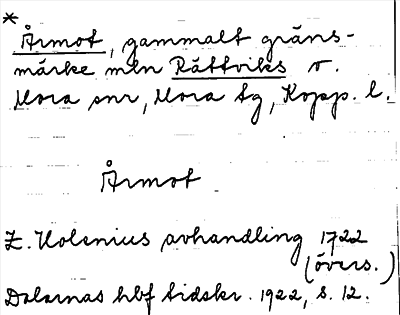 *
Årmot, gammalt gräns-
märke mln Rättviks o.
Mora snr, Mora tg, Kopp. l.
Årmot
Z. Holenius avhandling 1722
(övers.)
Dalarnas hbf tidskr. 1922, s. 12.